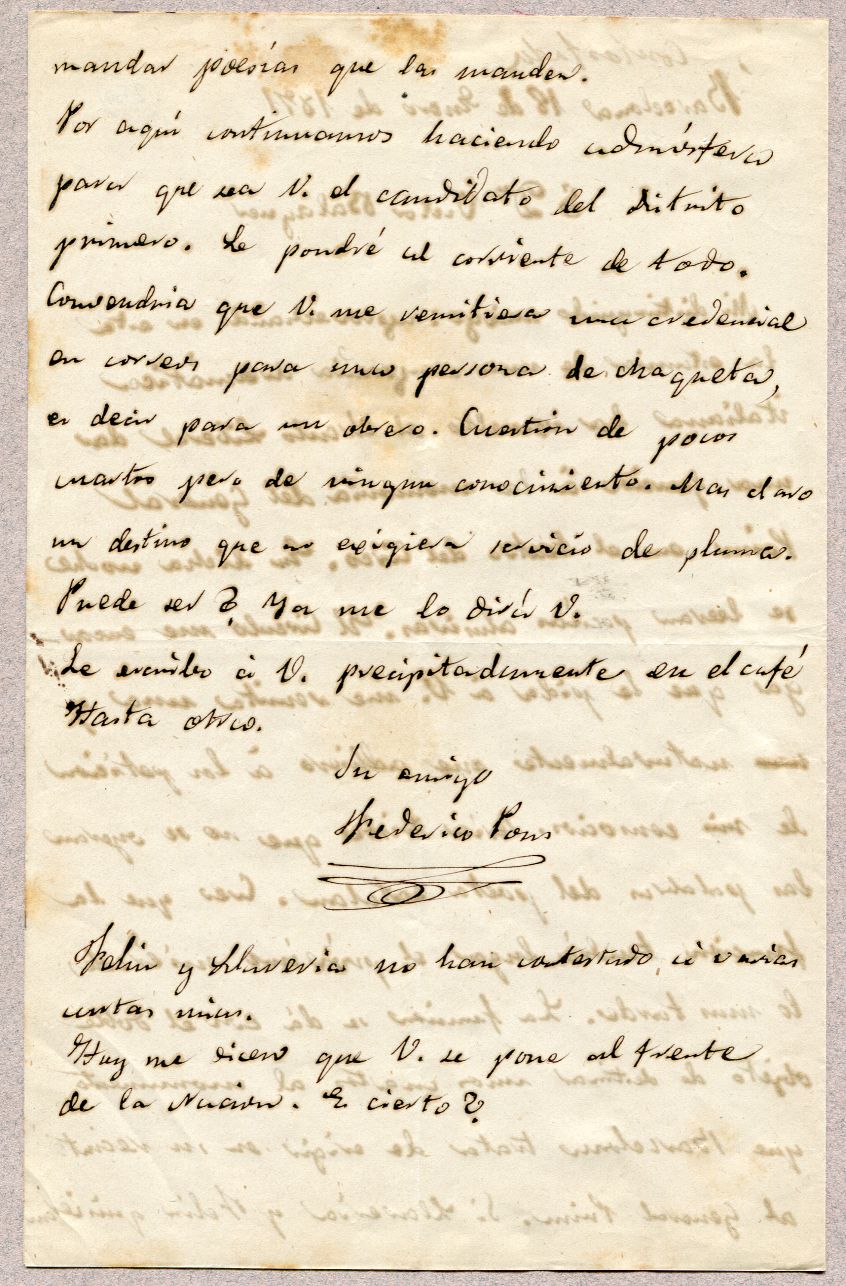 mandar poesías que las manden.
Por aquí continuamos haciendo atmósfera
para que sea V. el candidato del distrito
primero. Le pondré al corriente de todo.
Convendria que V. me remitiera una credencial
en correos para una persona de chaqueta,
es decir para un obrero. Cuestion de pocos
cuartos pero de ningun conocimiento. Mas claro
un destino que no exigiera servicio de pluma.
Puede ser? Ya me lo dirá V.
Le escribo á V. precipitadamente en el café
Hasta otra.
Su amigo
Federico Pons
Feliu y Llaveria no han contestado á varias
cartas mias.
Hoy me dicen que V. se pone al frente
de la Nacion. Es cierto?